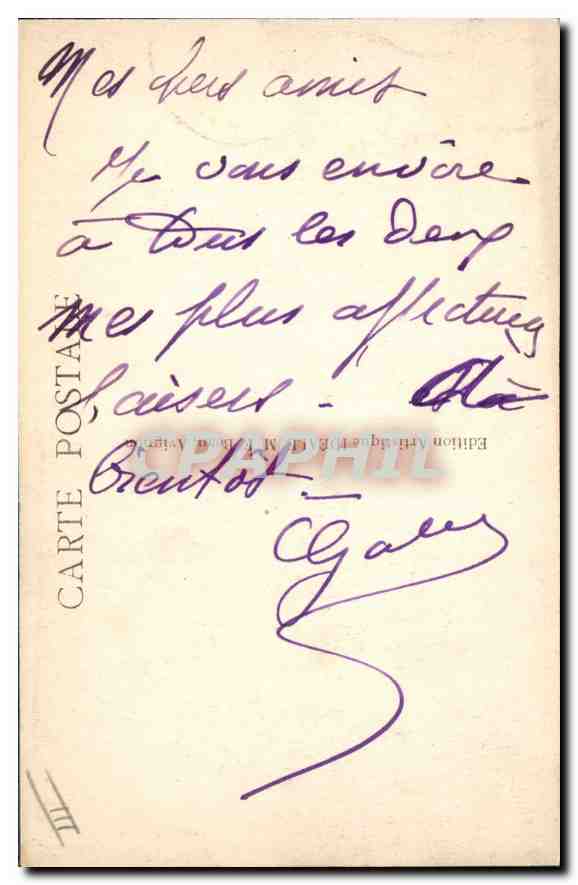 Mes chers amis
Je vous envoie
à tous les deux
mes plus affectueux
baisers - à
bientôt
CARTE POSTALE
Edition Artistique IDEALE, M. R. Avignon
CPAPHIL
III